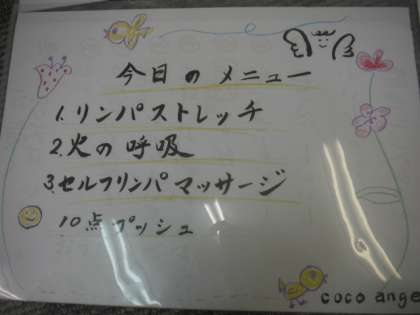 今日のメニュー
1.リンパストレッチ
2.火の呼吸
3.セルフリンパマッサージ
10点プッシュ
coco ange